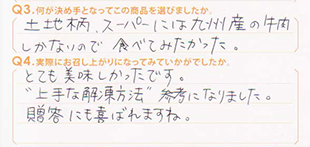 Q3.何が決め手となってこの商品を選びましたか。
土地柄、スーパーには九州産の牛肉
しかないので 食べてみたかった。
Q4.実際にお召し上がりになってみていかがでしたか。
とても美味しかったです。
"上手な解凍方法" 参考になりました。
贈答にも喜ばれますね。